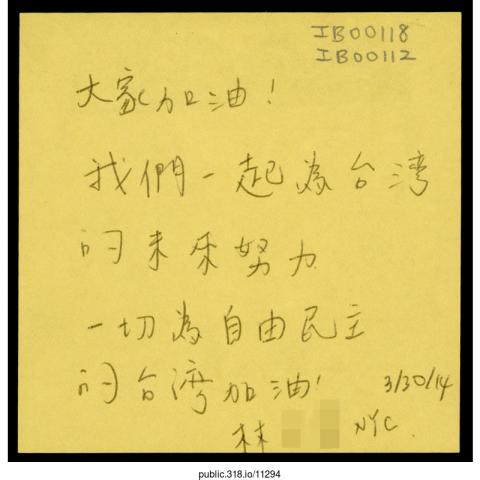 IB00118
IB00112
大家加油!
我們一起為台湾
的未來努力
一切為自由民主
的台湾加油!
3/30/14
林
NYC.
public.318.io/11294